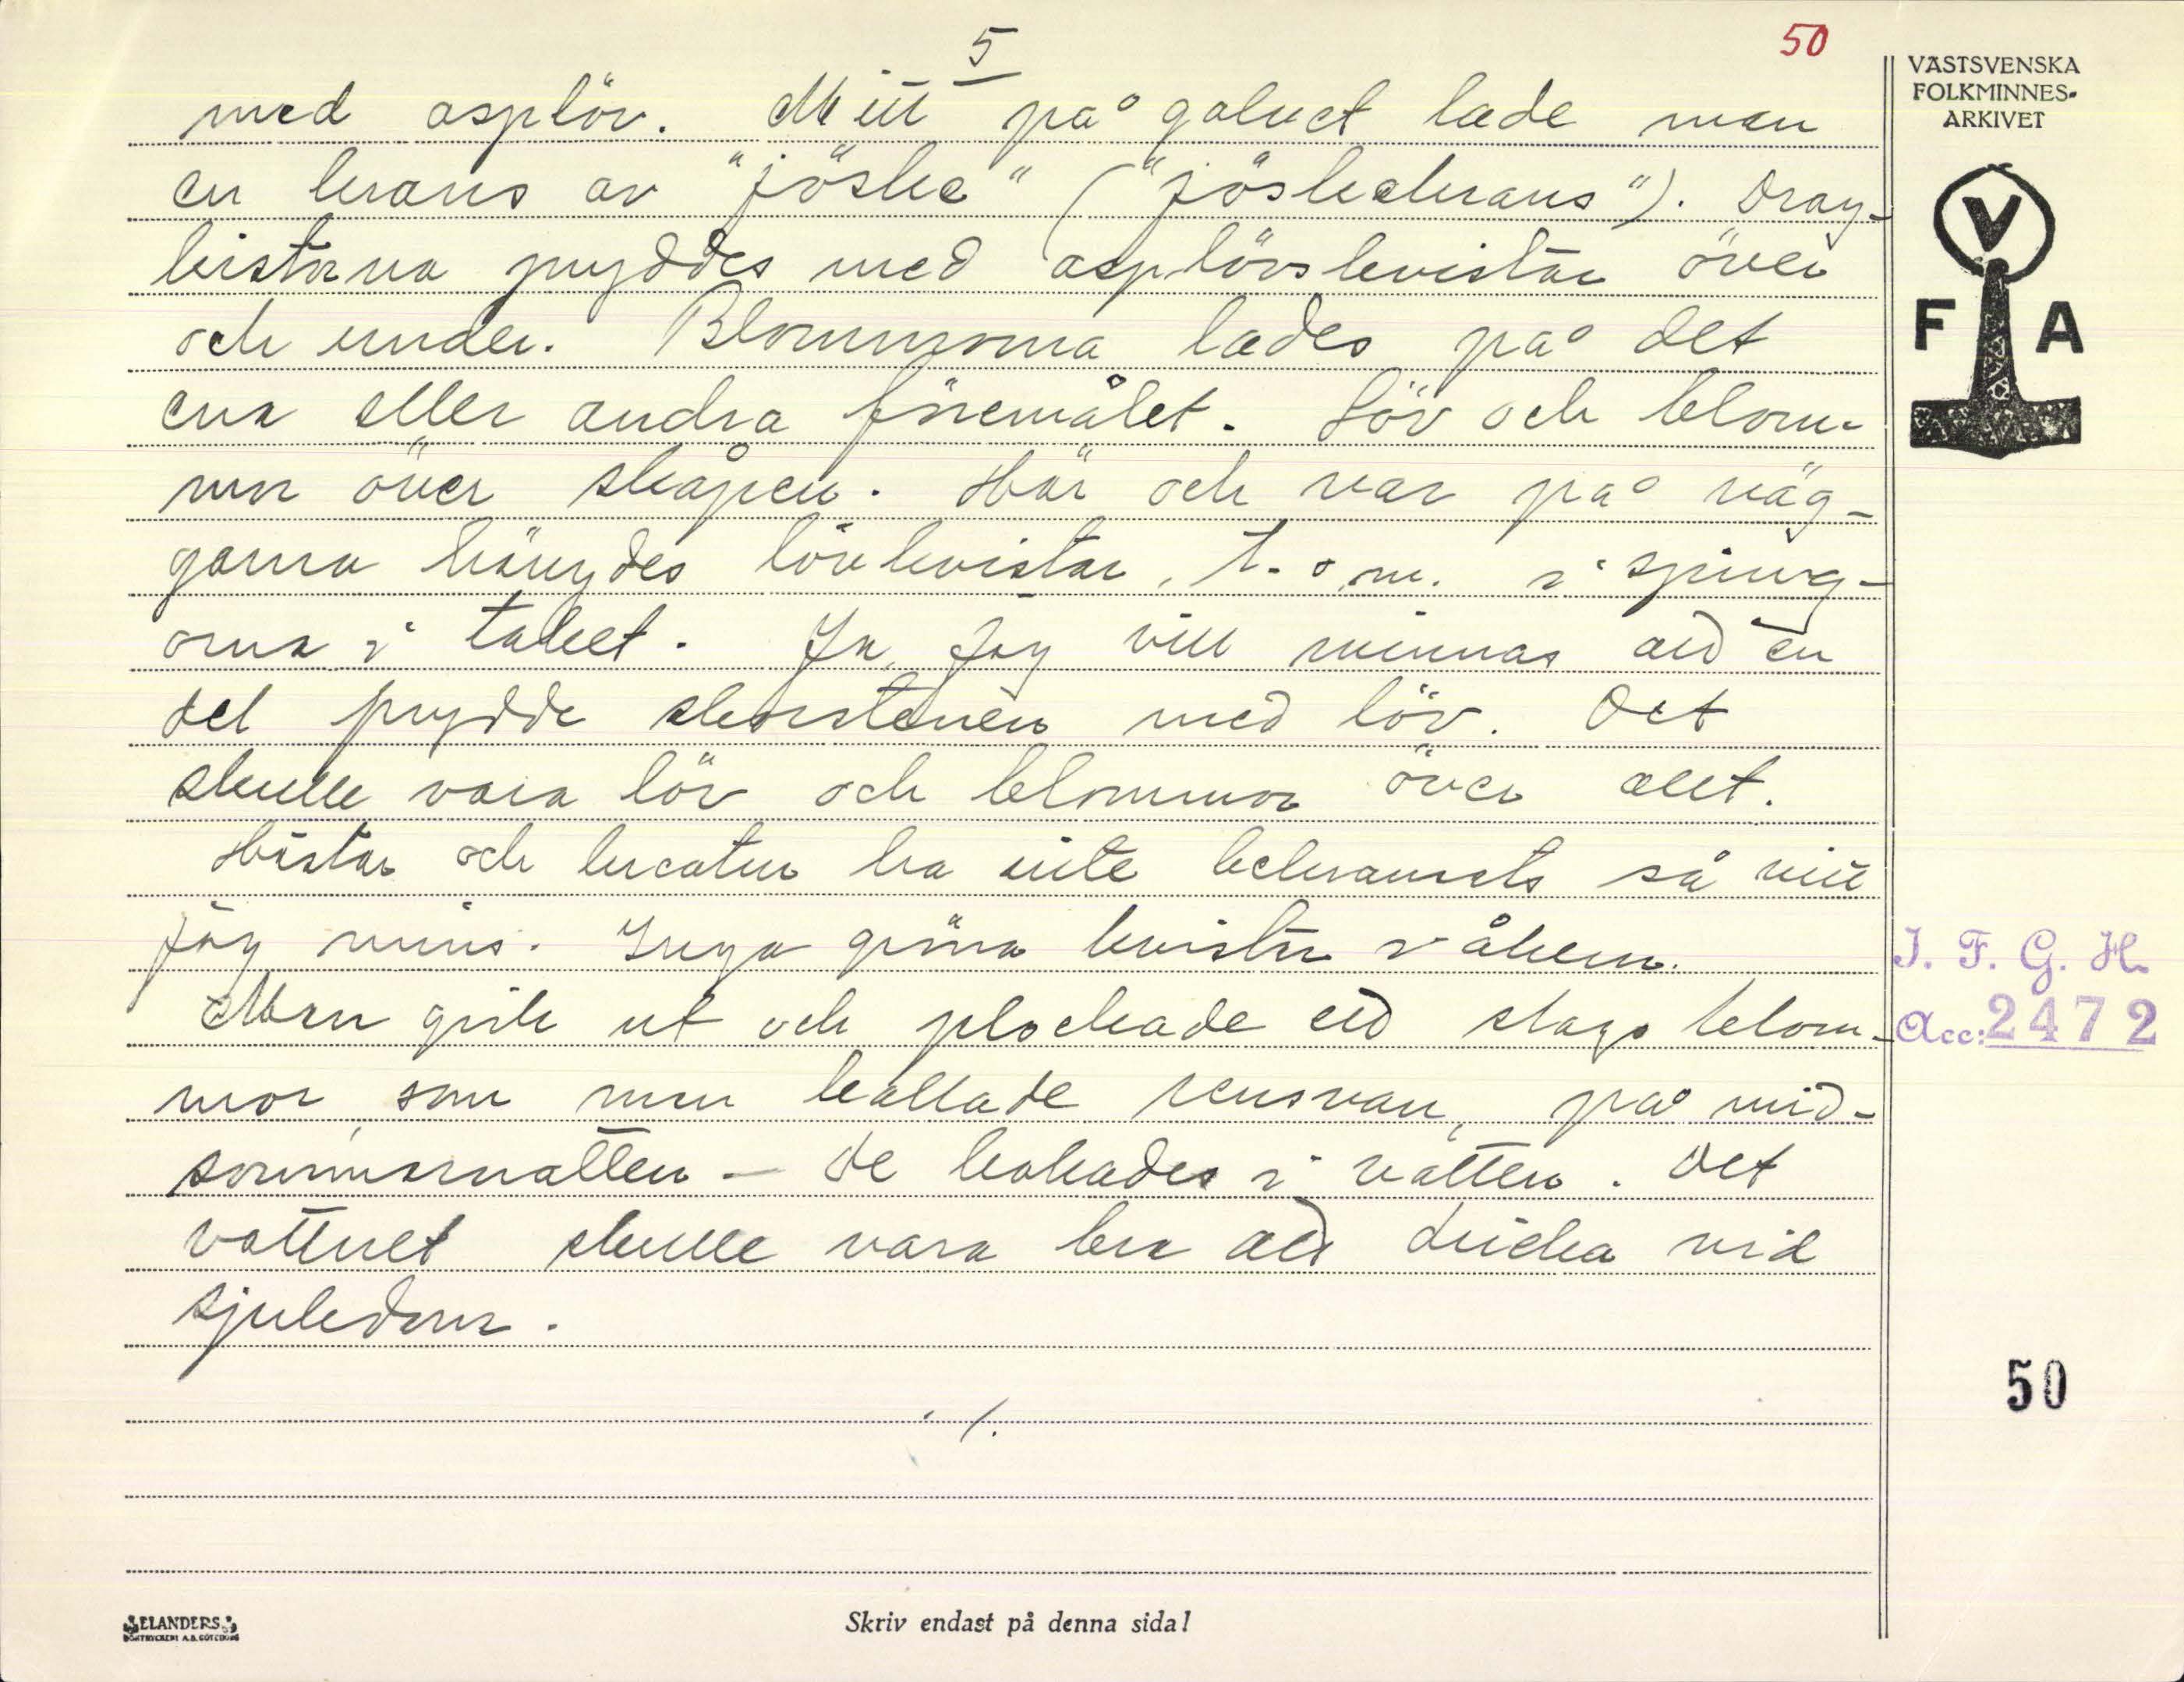 5
50
med asplöv. Mitt på golvet lade man
en krans av "jöske" ("jöskekrans"). Drag-
kistorna pryddes med asplövskvistar över
och under. Blommorna lades på det
ena eller andra föremålet. Löv och blom-
mor över skåpen. Här och var på väg-
garna hängdes lövkvistar, t. o. m. i spring-
orna i taket. Ja, jag vill minnas att en
del prydde skorstenen med löv. Det
skulle vara löv och blommor över allt.
Hästar och kreatur ha inte bekransats så vitt
jag minns. Inga gröna kvistar i åkern.
Man gick ut och plockade ett slags blom-
mor, som man kallade rensvan, på mid-
sommarnatten - de kokades i vatten. Det
vattnet skulle vara bra att dricka vid
sjukdom.
./.
VÄSTSVENSKA
FOLKMINNES-
ARKIVET
V
F A
I. F. G. H.
Acc: 2472
50
ELANDERS
BOKTRYCKERI A.B. GÖTEBORG
Skriv endast på denna sida!